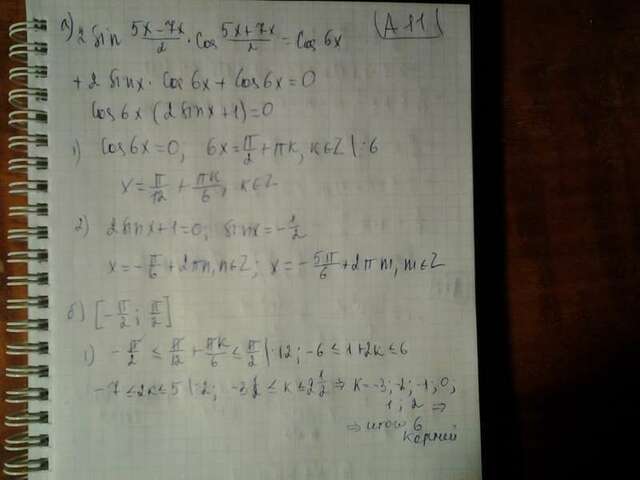 а) 2 sin (5x-7x)/2 · cos (5x+7x)/2 = cos 6x (A 11)
+ 2 sin x · cos 6x + cos 6x = 0
cos 6x (2 sin x + 1) = 0
1) cos 6x = 0; 6x = π/2 + πk, k∈Z |:6
x = π/12 + πk/6, k∈Z
2) 2 sin x + 1 = 0; sin x = -1/2
x = -π/6 + 2πn, n∈Z; x = -5π/6 + 2πm, m∈Z
б) [-π/2; π/2]
1) -π/2 ≤ π/12 + πk/6 ≤ π/2 |·12; -6 ≤ 1+2k ≤ 6
-7 ≤ 2k ≤ 5 |:2; -3 1/2 ≤ k ≤ 2 1/2 ⇒ k = -3; -2; -1; 0;
1; 2 ⇒
⇒ итого 6
корней